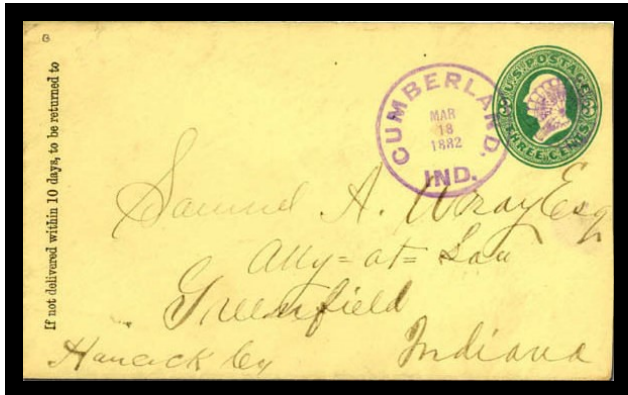 If not delivered within 10 days, to be returned to
CUMBERLAND.
MAR
18
1882
IND.
U.S. POSTAGE
THREE CENTS
Samuel A. Wray Esq
Atty=at=Law
Greenfield
Hancock Co
Indiana